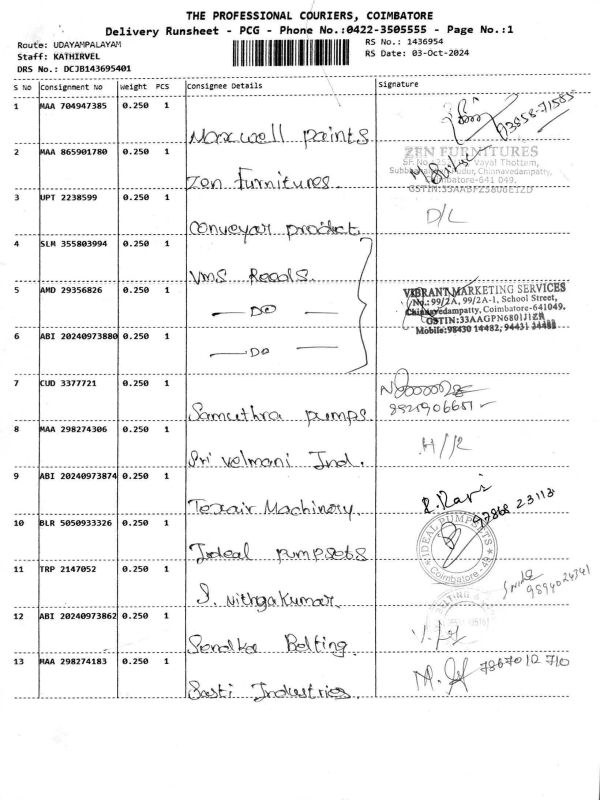 THE PROFESSIONAL COURIERS, COIMBATORE
Delivery Runsheet - PCG - Phone No.:0422-3505555 - Page No.:1
Route: UDAYAMPALAYAM
RS No.: 1436954
Staff: KATHIRVEL
RS Date: 03-Oct-2024
DRS No.: DCJB143695401
S No Consignment No Weight PCS Consignee Details Signature
1 MAA 704947385 0.250 1 Maxwell paints
2 MAA 865901780 0.250 1 Zen Furnitures
ZEN FURNITURES
Vayal Thottem,
Chinnavedampatty,
Coimbatore-641 049.
3 UPT 2238599 0.250 1 Conveyar product D/L
4 SLM 355803994 0.250 1 Vms Reeds
5 AMD 29356826 0.250 1 — DO —
VIBRANT MARKETING SERVICES
No.: 99/2A, 99/2A-1, School Street,
Chinnavedampatty, Coimbatore-641049.
GSTIN:33AAGPN6801J1ZR
Mobile:98430 14482, 94431 34482
6 ABI 20240973880 0.250 1 — DO
7 CUD 3377721 0.250 1 Samuthra pumps
8 MAA 298274306 0.250 1 Sri velmani Ind.
9 ABI 20240973874 0.250 1 Texair Machinery R. Ravi
97868 23113
10 BLR 5050933326 0.250 1 Ideal pumpsets
IDEAL PUMPSETS
Coimbatore - 49
11 TRP 2147052 0.250 1 S. nithyakumar
9894024341
12 ABI 20240973862 0.250 1 Senalka Belting
13 MAA 298274183 0.250 1 Sasti Industries 7867012710